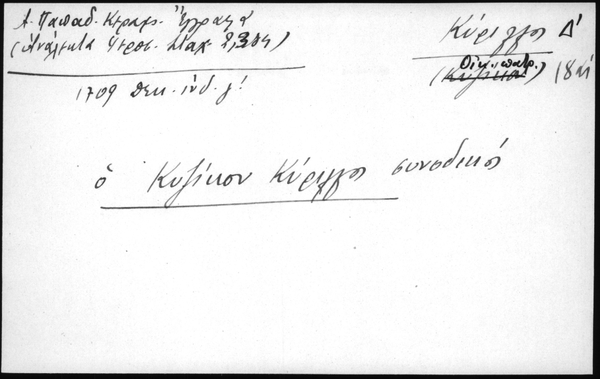 Α. Παπαδ. Κεραμ. Ἔγγραφα
(Ἀνάλεκτα Ἱεροσ. Σταχ. 2, 304)
1709 Δεκ. ἰνδ. γ΄.
Κύριλλος Δ΄
Οἰκ. πατρ.
(Κυζίκου) 18 αἰ
ὁ Κυζίκου Κύριλλος συνοδικός